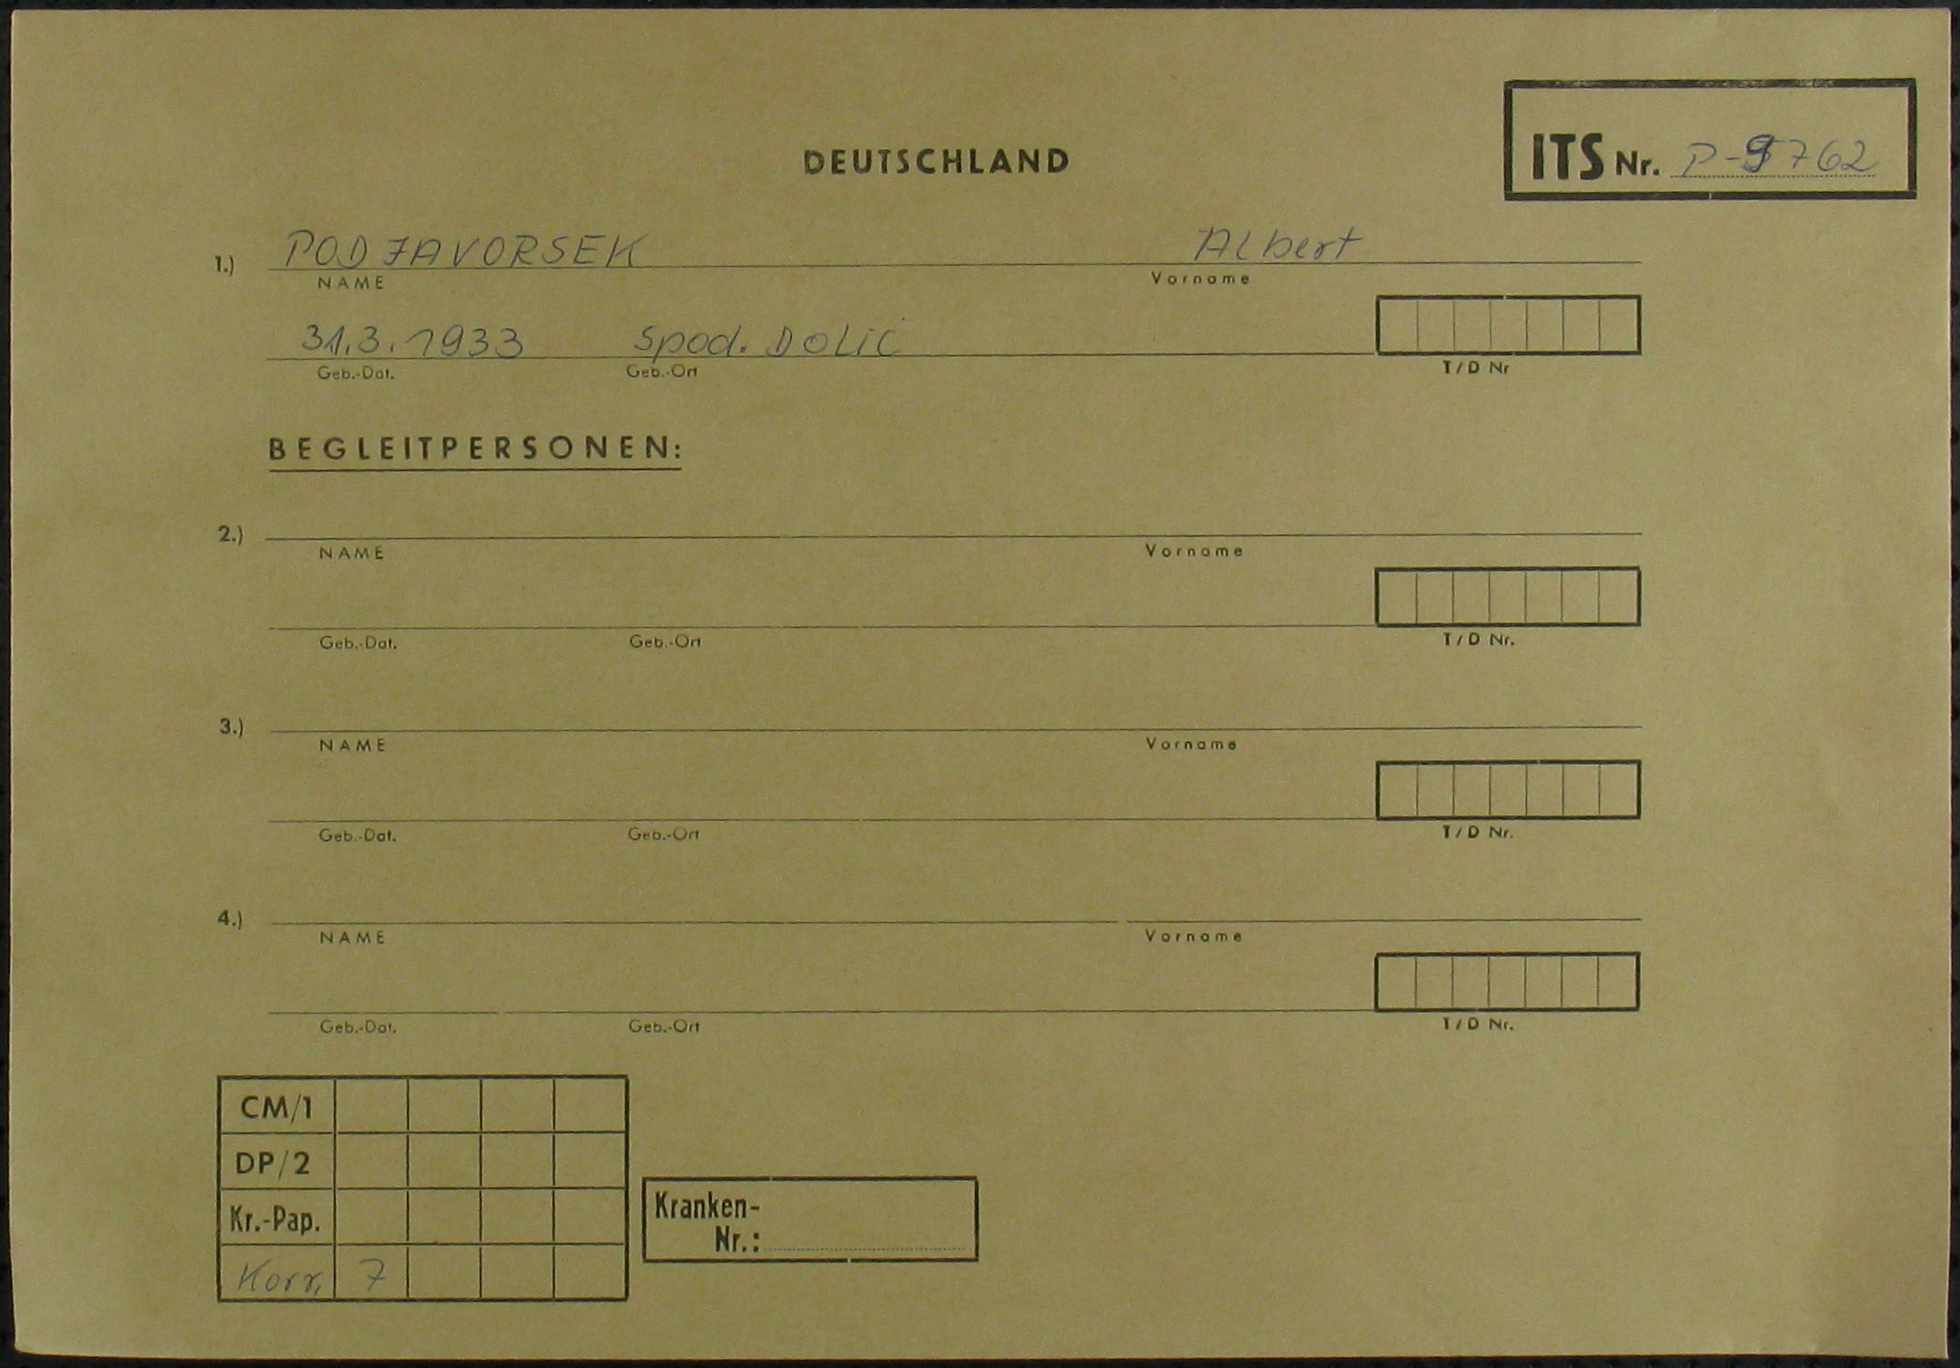 DEUTSCHLAND
ITS Nr. P-9762
1.) PODJAVORSEK Albert
NAME Vorname
31.3.1933 Spod. DOLIC
Geb.-Dat. Geb.-Ort T/D Nr
BEGLEITPERSONEN:
2.)
NAME Vorname
Geb.-Dat. Geb.-Ort T/D Nr.
3.)
NAME Vorname
Geb.-Dat. Geb.-Ort T/D Nr.
4.)
NAME Vorname
Geb.-Dat. Geb.-Ort T/D Nr.
CM/1
DP/2
Kr.-Pap.
Korr. 7
Kranken-
Nr.: